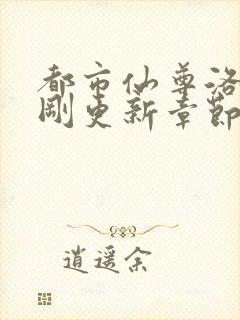 都市仙尊洛
刚更新章节
逍遥余